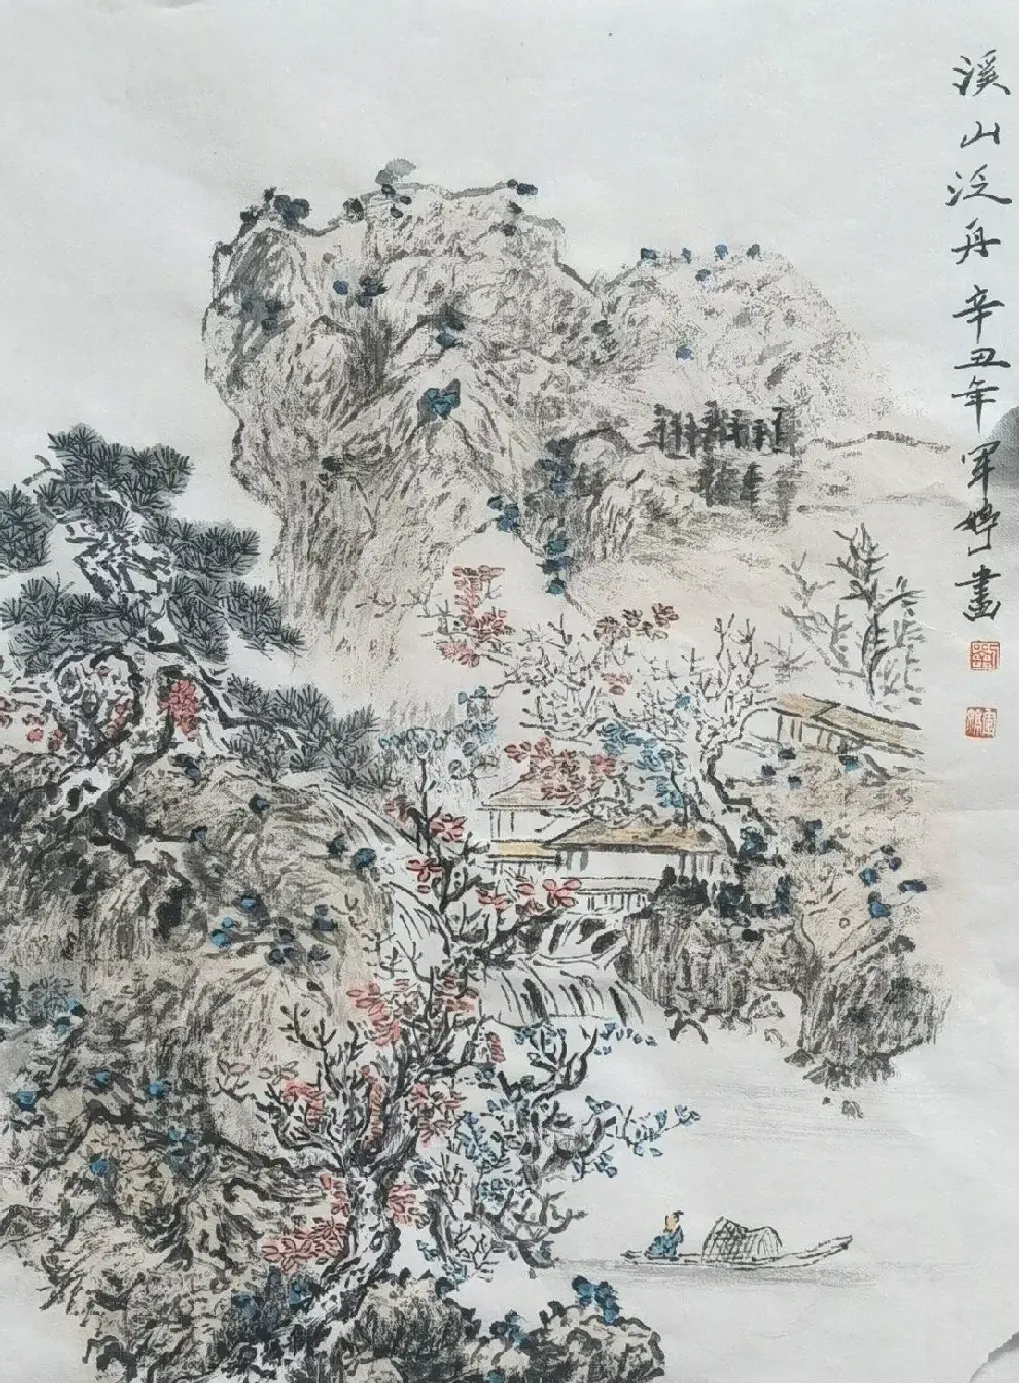 溪山泛舟 辛丑年軍婷畫